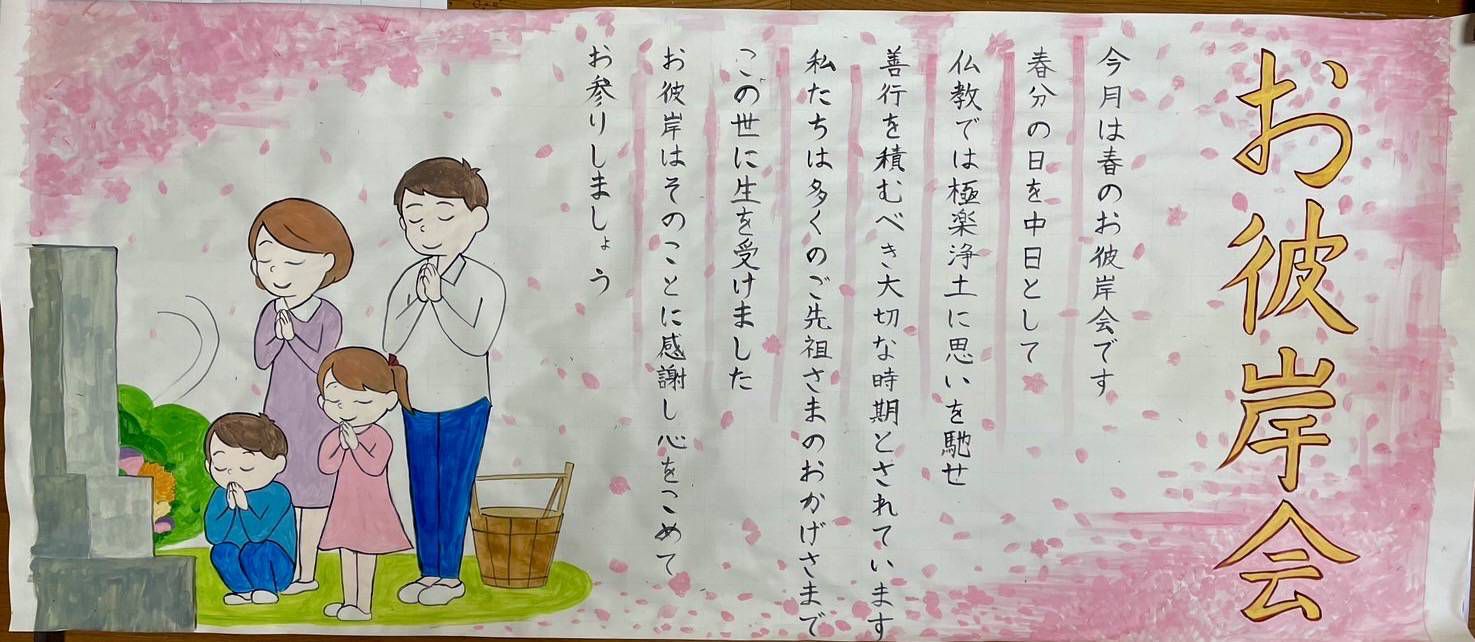 お彼岸会
今月は春のお彼岸会です
春分の日を中日として
仏教では極楽浄土に思いを馳せ
善行を積むべき大切な時期とされています
私たちは多くのご先祖さまのおかげさまで
この世に生を受けました
お彼岸はそのことに感謝し心をこめて
お参りしましょう